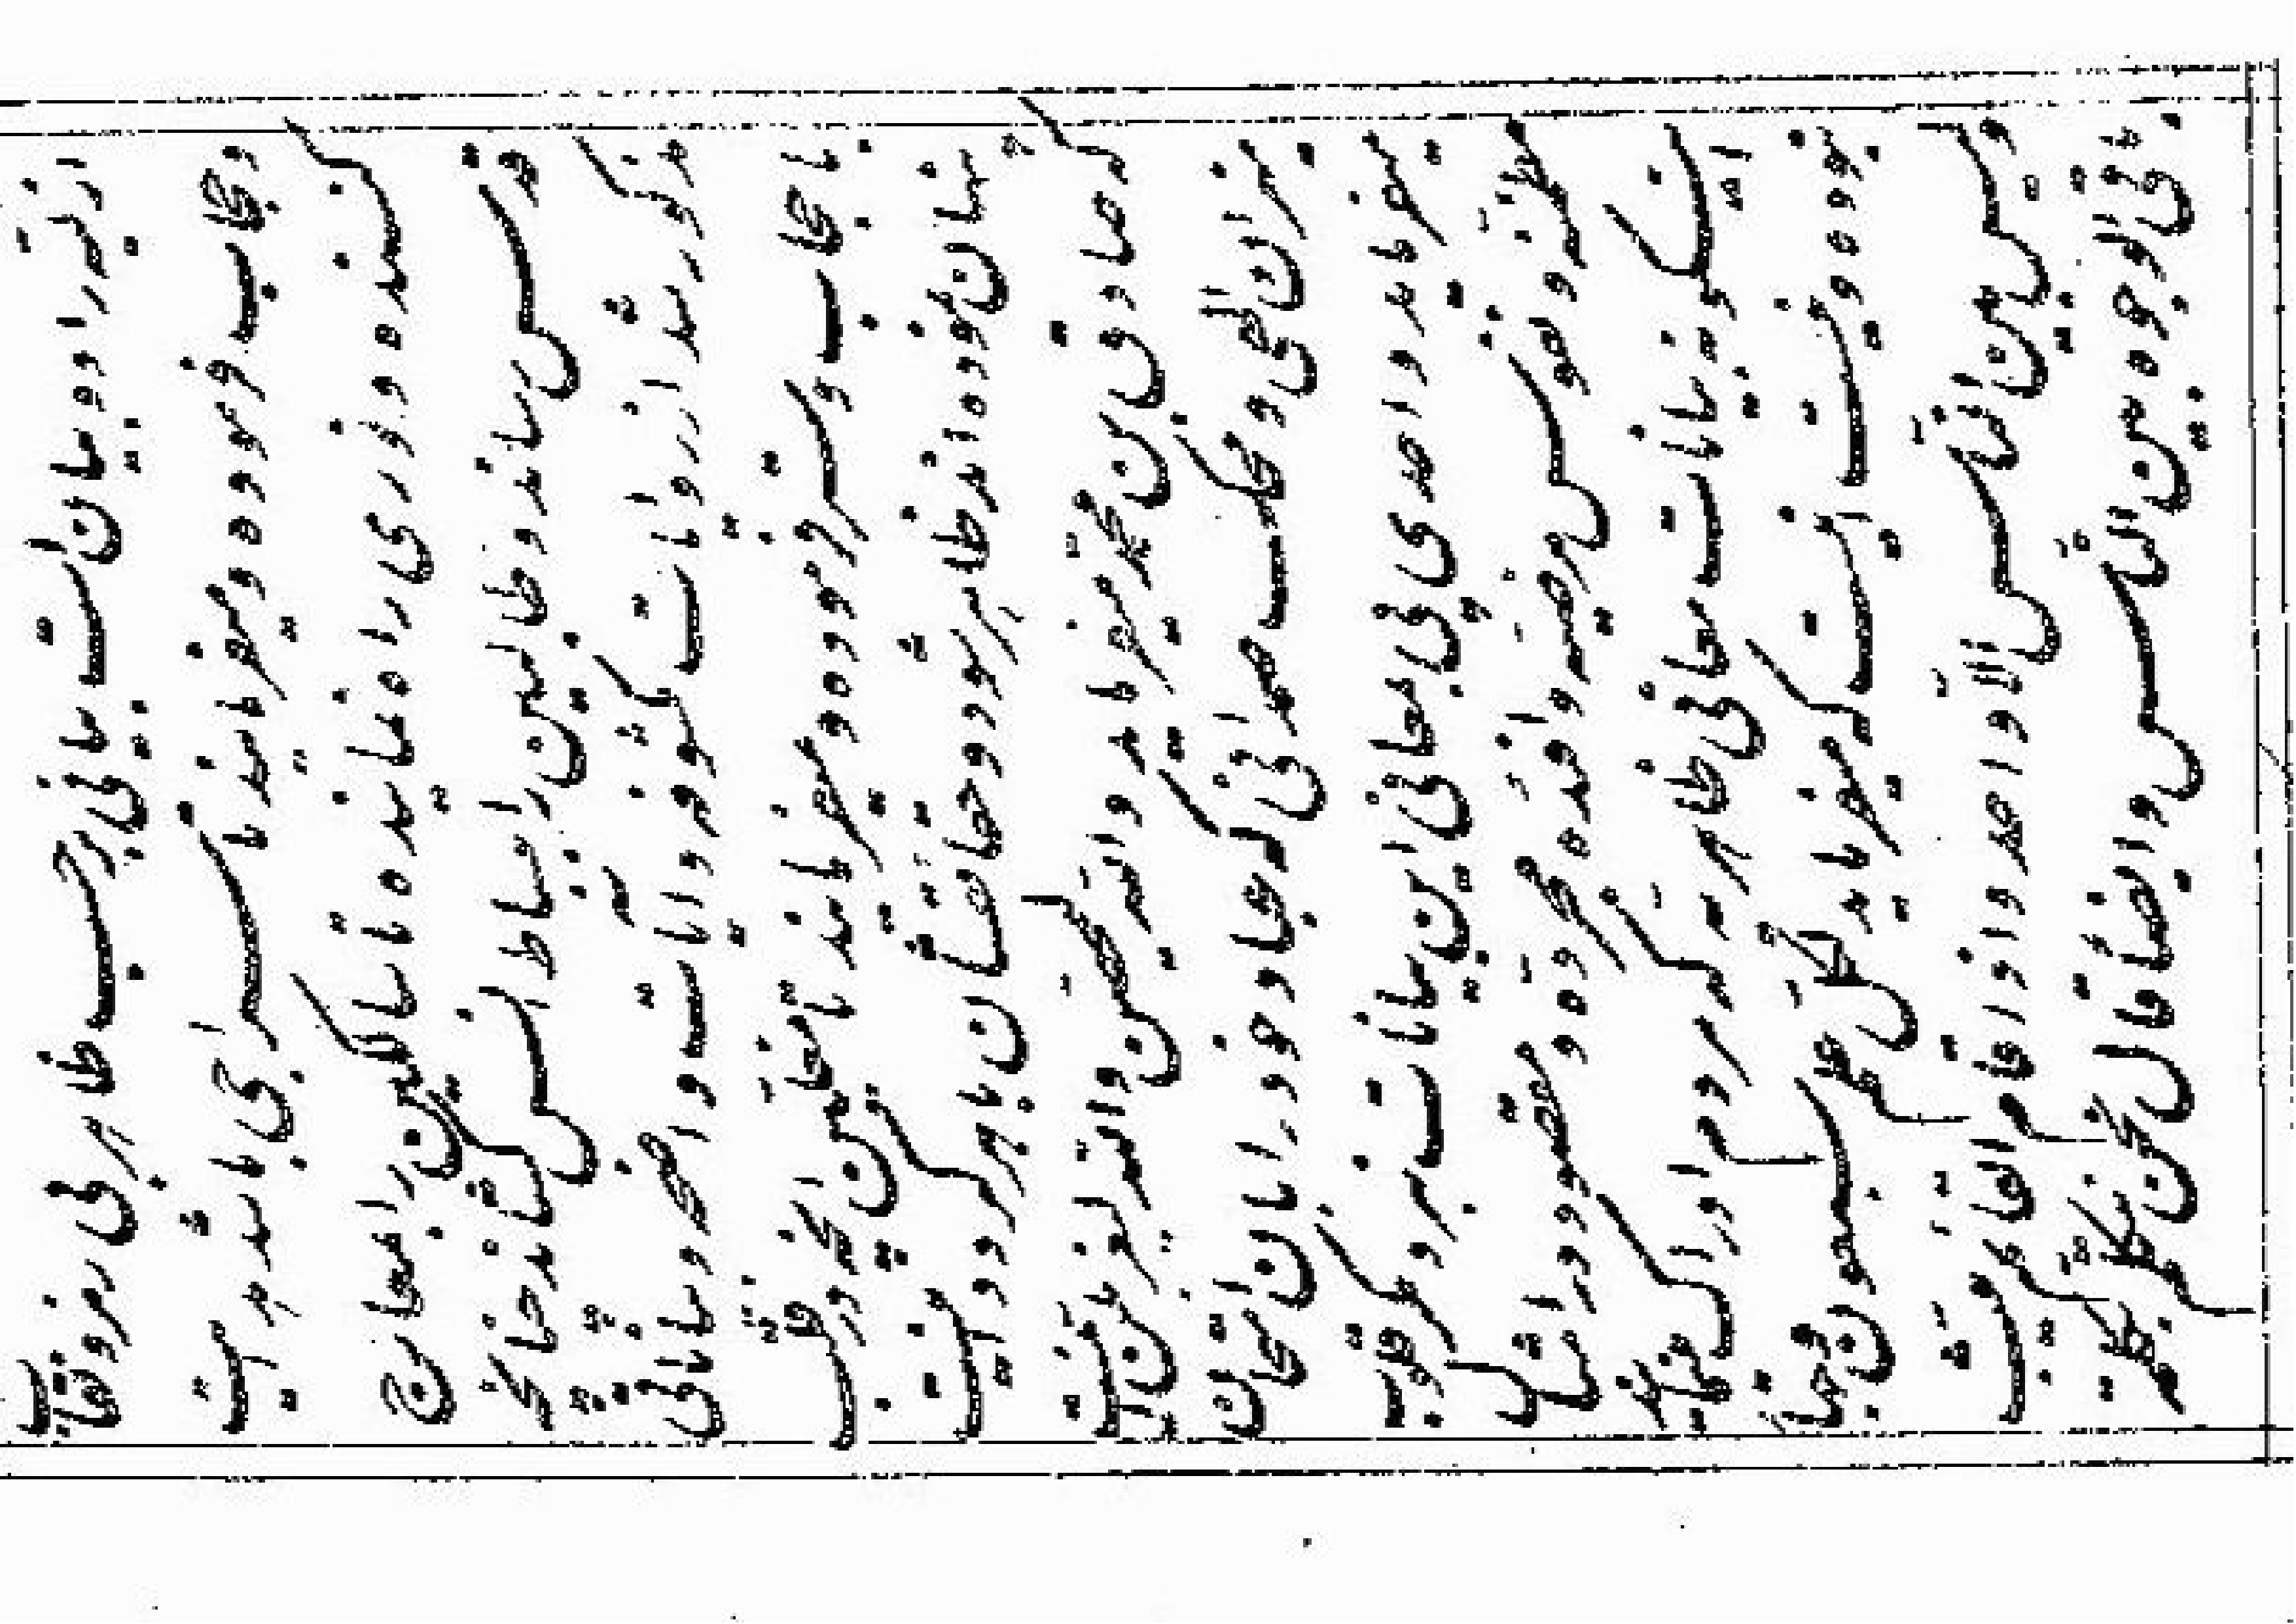 ازلیّه را دو بیان است بیانی بر حسب ظاهر بی رمز و نقاب
و حجاب فرموده و میفرمایند تا سراجی باشد هدایت
کننده و نوری راه نماینده تا سالکین را بمعارج
قدس رساند و طالبین را ببساط انس کشاند چنانچه
مذکور شد از روایات مکشوفه و آیات واضحه و بیاناتی
با حجاب و ستر فرموده و میفرمایند تا مغلّین آنچه در قلب
پنهان نموده‌اند ظاهر شود و حقایقشان باهر گردد اینست
که صادق بن محمّد میفرماید و اللّه لیمحّصنّ و اللّه لیغربلنّ اینست
میزان الهی و محک صمدانی که عباد خود را بآن امتحان
میفرماید و احدی پی بمعانی این بیانات نبرد مگر قلوب
مطمئنّه و نفوس مرضیّه و افئده مجرّده و مقصود در امثال
اینگونه بیانات معانی ظاهریّه که مردم ادراک مینمایند
نبوده و نیست اینست که میفرماید لکلّ علم سبعون وجهاً
و لیس بین النّاس الّا واحد و اذا قام القائم یبثّ
باقی الوجوه بین النّاس و ایضاً قال نحن نتکلّم بکلمة و نرید